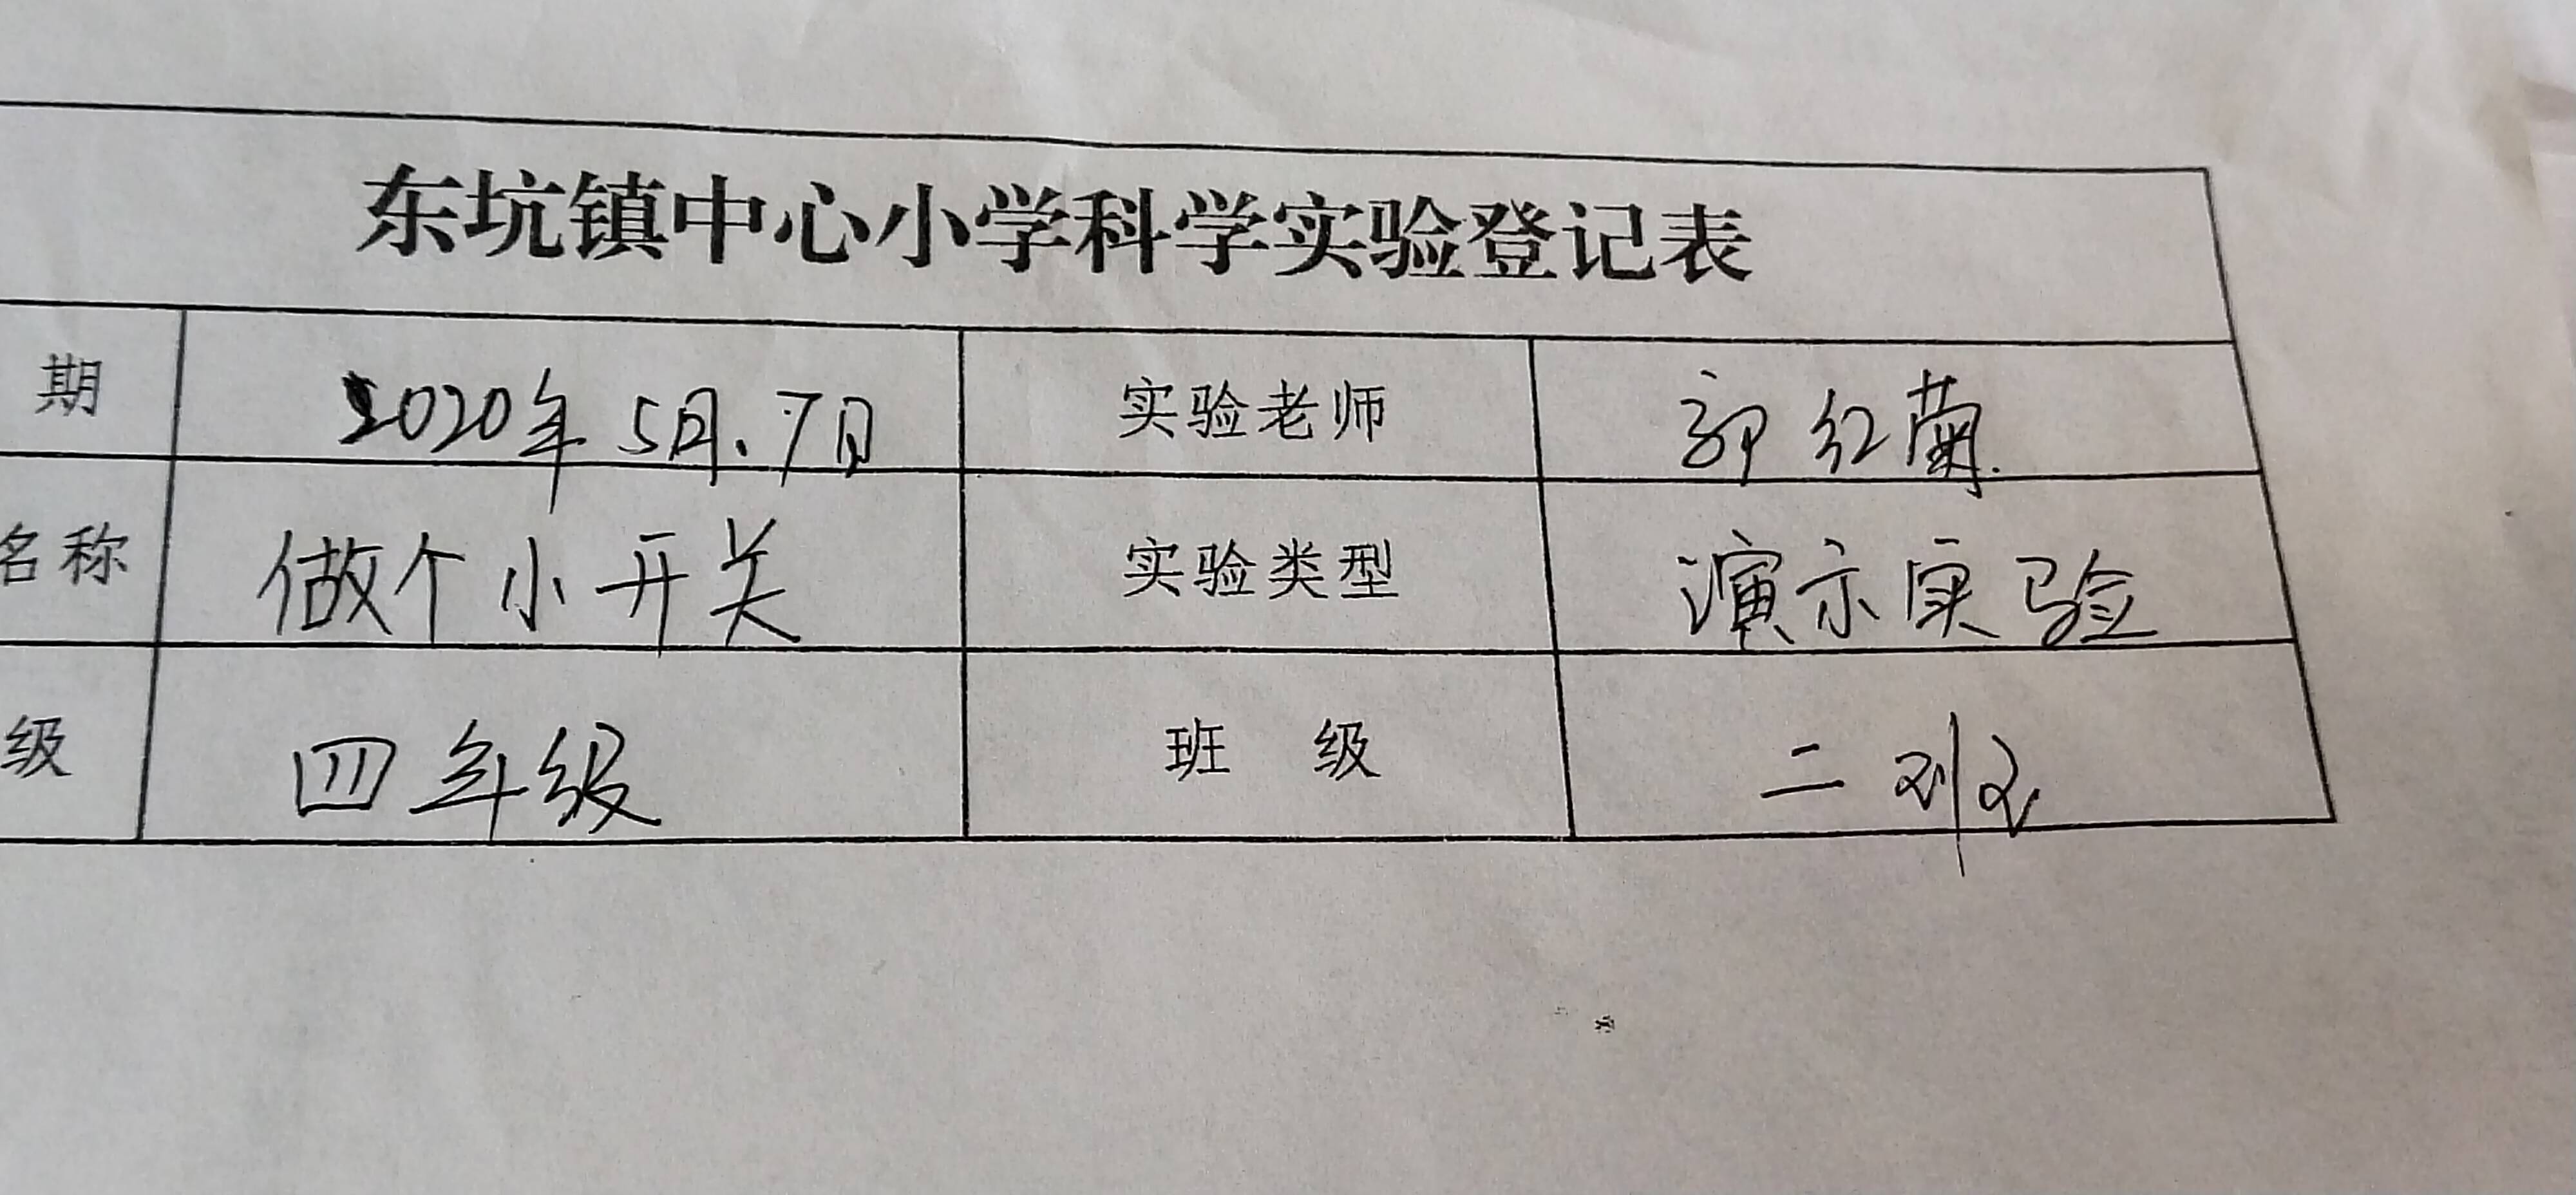 东坑镇中心小学科学实验登记表
期 2020年5月.7日 实验老师 郭红菊.
名称 做个小开关 实验类型 演示实验
级 四年级 班 级 二班